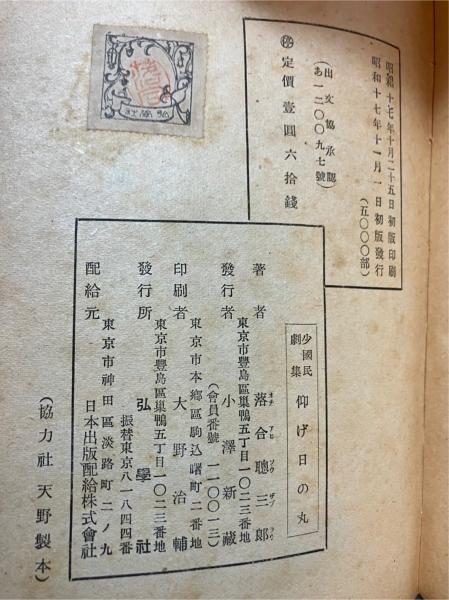 昭和十七年十月二十五日初版印刷
昭和十七年十一月一日初版發行
(五〇〇〇部)
(出文協承認
あ一二〇〇九七號)
㊕定價壹圓六拾錢
弘學社
少國民
劇集
仰げ日の丸
著者 落合聰三郎
オチ アヒ ソウ ザブ ラウ
東京市豐島區巢鴨五丁目一〇二三番地
發行者 小澤新藏
(會員番號 一一〇〇一三)
東京市本鄕區駒込曙町二番地
印刷者 大野治輔
東京市豐島區巢鴨五丁目一〇二三番地
發行所 弘學社
振替東京八一八四四番
東京市神田區淡路町二ノ九
配給元 日本出版配給株式會社
(協力社 天野製本)